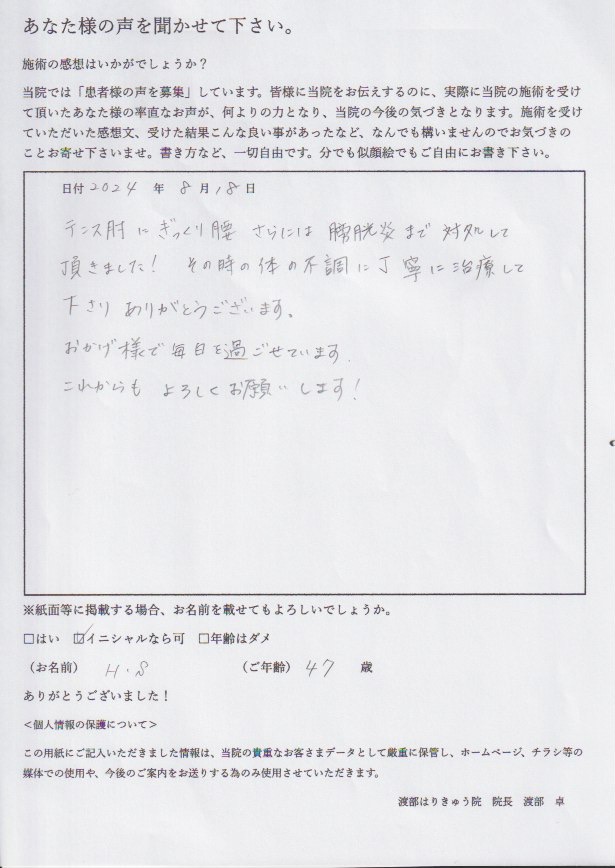 あなた様の声を聞かせて下さい。
施術の感想はいかがでしょうか？
当院では「患者様の声を募集」しています。皆様に当院をお伝えするのに、実際に当院の施術を受け
て頂いたあなた様の率直なお声が、何よりの力となり、当院の今後の気づきとなります。施術を受け
ていただいた感想文、受けた結果こんな良い事があったなど、なんでも構いませんのでお気づきの
ことお寄せ下さいませ。書き方など、一切自由です。分でも似顔絵でもご自由にお書き下さい。
日付 2024 年 8 月 18 日
テニス肘にぎっくり腰 さらには 膀胱炎まで 対処して
頂きました！ その時の体の不調に丁寧に治療して
下さり ありがとうございます。
おかげ様で毎日を過ごせています.
これからも よろしくお願いします！
※紙面等に掲載する場合、お名前を載せてもよろしいでしょうか。
□はい ☑イニシャルなら可 □年齢はダメ
（お名前） H・S （ご年齢） 47 歳
ありがとうございました！
＜個人情報の保護について＞
この用紙にご記入いただきました情報は、当院の貴重なお客さまデータとして厳重に保管し、ホームページ、チラシ等の
媒体での使用や、今後のご案内をお送りする為のみ使用させていただきます。
渡部はりきゅう院 院長 渡部 卓